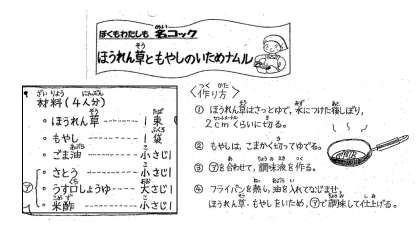 ぼくもわたしも 名コック
ほうれん草ともやしのいためナムル
材料(4人分)
・ほうれん草 -------- 1束
・もやし -------- 1袋
・ごま油 -------- 小さじ1
・さとう -------- 小さじ1
・うす口しょうゆ ---- 大さじ1
・米酢 -------- 小さじ1
㋐
〈作り方〉
① ほうれん草はさっとゆで、水につけた後しぼり、
2cmくらいに切る。
② もやしは、こまかく切ってゆでる。
③ ㋐を合わせて、調味液を作る。
④ フライパンを熱し、油を入れてなじませ、
ほうれん草、もやしをいため、㋐で調味して仕上げる。